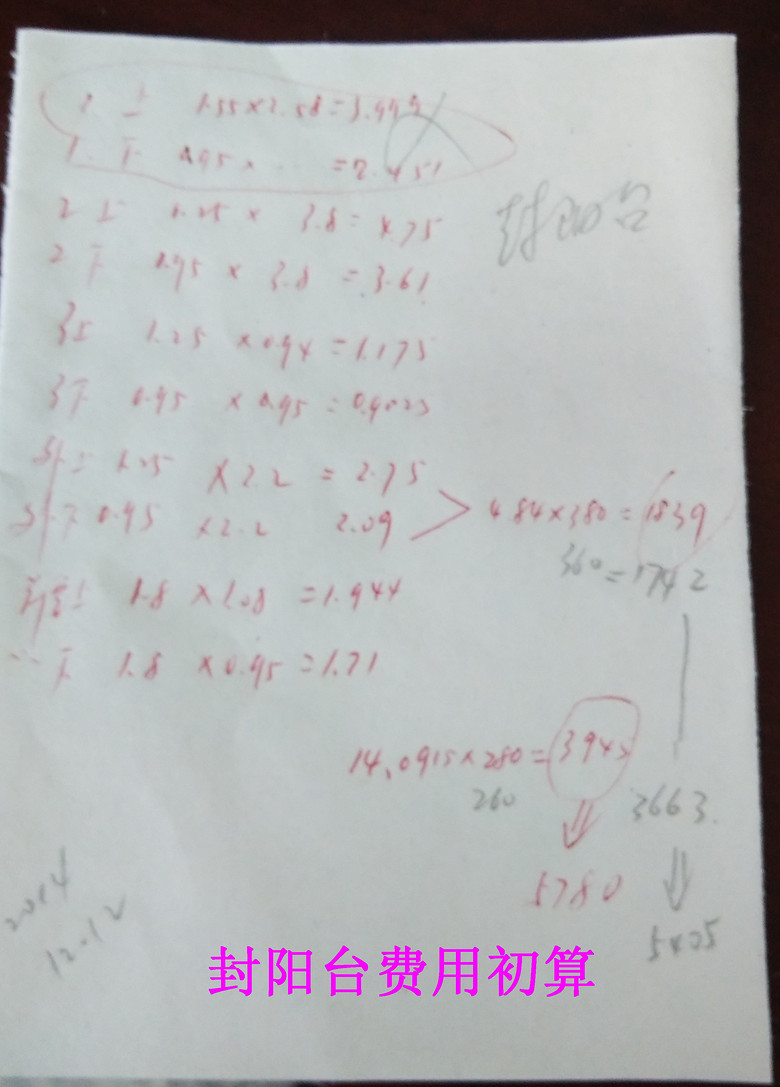 1 上 1.55×2.58=3.999
1. 下 0.95× ·· =2.451
封阳台
2上 1.25× 3.8=4.75
2下 0.95 × 3.8 =3.61
3上 1.25 ×0.94=1.175
3下 0.95 ×0.95=0.9025
外上 1.25 ×2.2 =2.75
外下 0.95 ×2.2 2.09
4.84×380=1839
360=1742
上 1.8 ×1.08 =1.944
··下 1.8 ×0.95=1.71
14.0915×280=3945
260 3663.
5780
5405
2014
12.12
封阳台费用初算